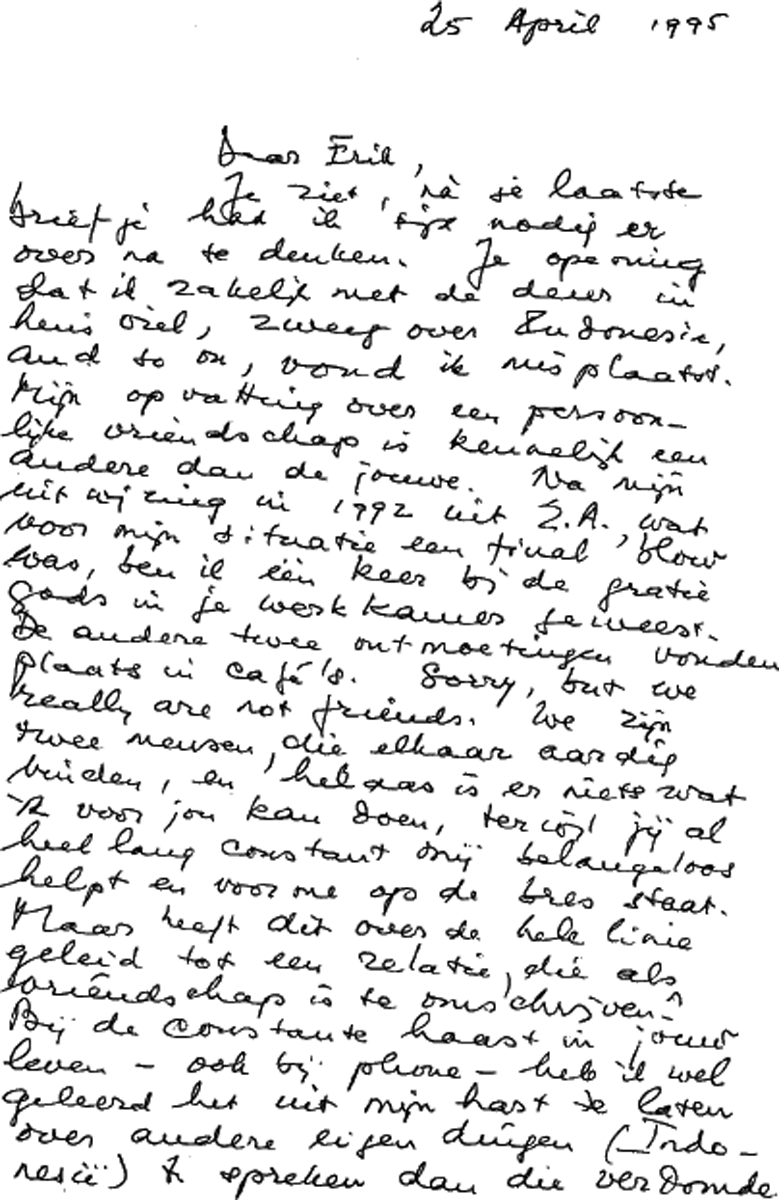 25 April 1995
Dear Erik,
Je ziet, nà je laatste
briefje had ik tijd nodig er
over na te denken. Je opening
dat ik zakelijk met de deur in
huis viel, zweeg over Indonesië,
and so on, vond ik misplaatst.
Mijn opvatting over een persoon-
lijke vriendschap is kennelijk een
andere dan de jouwe. Na mijn
uitwijzing in 1992 uit Z.A., wat
voor mijn situatie een final blow
was, ben ik één keer bij de gratie
gods in je werkkamer geweest.
De andere twee ontmoetingen vonden
plaats in café's. Sorry, but we
really are not friends. We zijn
twee mensen, die elkaar aardig
vinden, en helaas is er niets wat
ik voor jou kan doen, terwijl jij al
heel lang constant mij belangeloos
helpt en voor me op de bres staat.
Maar heeft dit over de hele linie
geleid tot een relatie, die als
vriendschap is te omschrijven?
Bij de constante haast in jouw
leven - ook bij phone - heb ik wel
geleerd het uit mijn hart te laten
over andere eigen dingen (Indo-
nesië) te spreken dan die verdomde